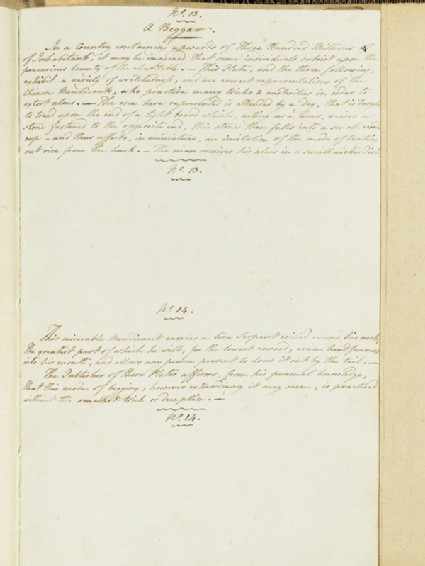 No. 13.
A Beggar.
In a Country containing upwards of Three Hundred Millions
of Inhabitants, it may be imagined that some individuals subsist upon the
precarious bounty of the charitable. — This Plate, and the three following,
exhibit a variety of wretchedness, and are correct representations of the
Chinese Mendicants, who practice many tricks & austerities in order to
extort alms. — The one here represented is attended by a dog, that is taught
to tread upon the end of a light board which, acting as a lever, raises a
stone fastened to the opposite end, this stone then falls into a small
cup — and thus affords, in miniature, an imitation of the mode of beating
out rice from the husk. — The man receives his alms in a small wicker
No. 13.
No. 14.
This miserable Mendicant carries a live Serpent coiled round his neck,
the greatest part of which he will, for the lowest reward, cram head foremost
into his mouth, and allows any person present to draw it out by the tail. —
The Publisher of these Plates affirms, from his personal knowledge,
that this mode of begging, however extraordinary it may seem, is practised
without the smallest trick or deception. —
No. 14.